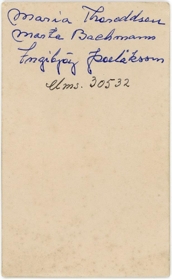 Maria Thoroddsen
Marta Bachmann
Ingibjörg Þorláksson
Mms. 30532